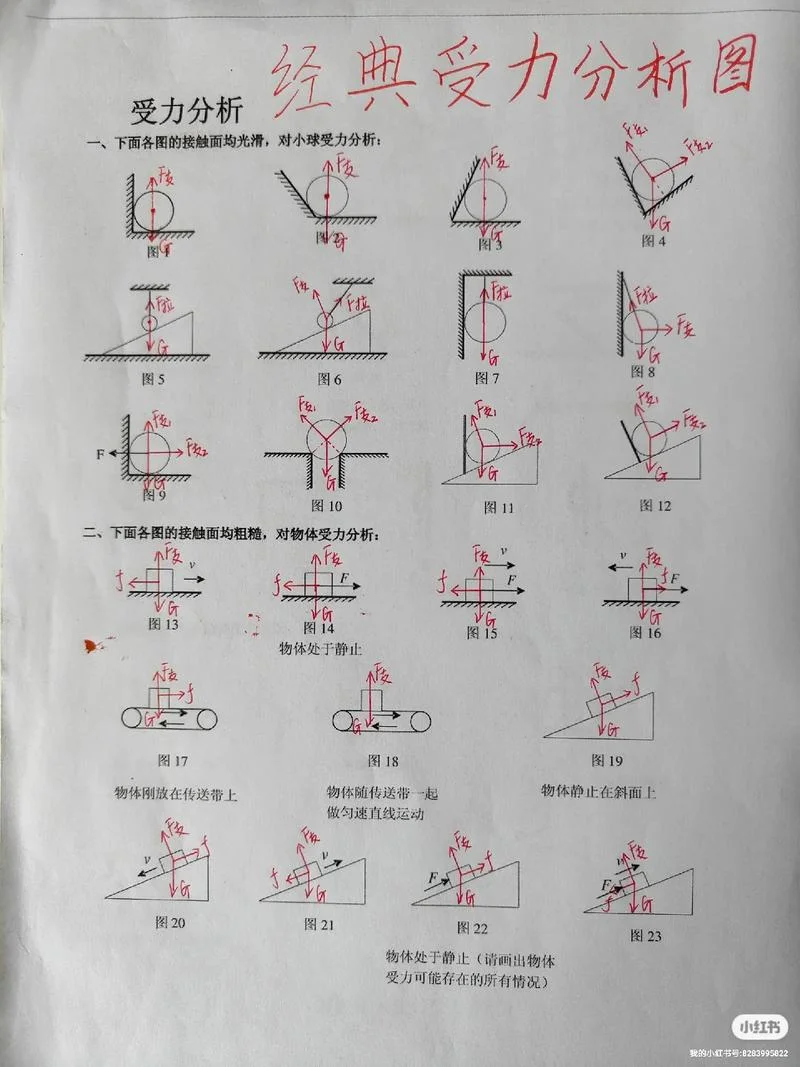 经典受力分析图
受力分析
一、下面各图的接触面均光滑，对小球受力分析：
F支 F支 F支 F支1 F支2
G G G G
图1 图2 图3 图4
F拉 F支 F拉 F拉 F拉 F支
G G G G
图5 图6 图7 图8
F F支2 F支1 F支2 F支1 F支2 F支1 F支2
G G G G
图9 图10 图11 图12
二、下面各图的接触面均粗糙，对物体受力分析：
F支 v f G F支 f F G F支 v f F G v F支 f F G
图13 图14 图15 图16
物体处于静止
F支 f G F支 G F支 f G
图17 图18 图19
物体刚放在传送带上 物体随传送带一起 物体静止在斜面上
做匀速直线运动
v F支 f G F支 v f G F支 F f G v F支 F f G
图20 图21 图22 图23
物体处于静止（请画出物体
受力可能存在的所有情况）
小红书
我的小红书号:8283995822